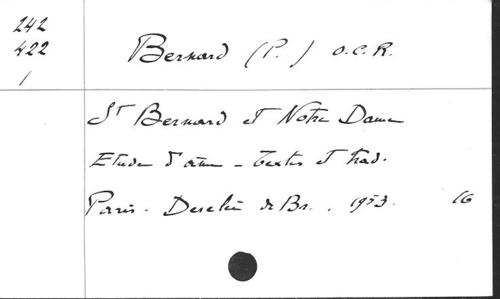 242
422
1
Bernard (P.) O.C.R.
St Bernard et Notre Dame
Etude d'âme - Textes et trad.
Paris. Desclée de Br. . 1953. 16